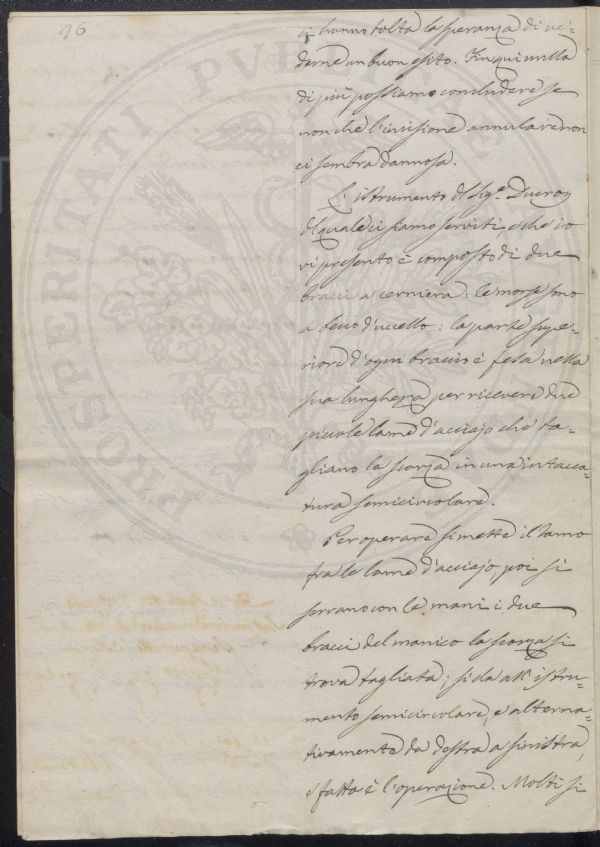 16
ci hanno tolta la speranza di ve-
derne un buon esito. Fin qui nulla
di più possiamo concludere se
non che l'incisione annulare non
ci sembra dannosa.
L'istrumento del Sig.e Ducroy
del quale ci siamo serviti, e che io
vi presento è composto di due
bracci a cerniera: le morse sono
a becco d'uccello: la parte supe-
riore d'ogni braccio è fesa nella
sua lunghezza per ricevere due
piccole lame d'acciajo che ta-
gliano la scorza in una intacca-
tura semicircolare.
Per operare si mette il ramo
fra le lame d'acciajo, poi si
serrano con le mani i due
bracci del manico la scorza si
trova tagliata; si da all'istru-
mento semicircolare, e alterna-
tivamente da destra a sinistra,
e fatta è l'operazione. Molti si
PROSPERITATI PUBLICAE